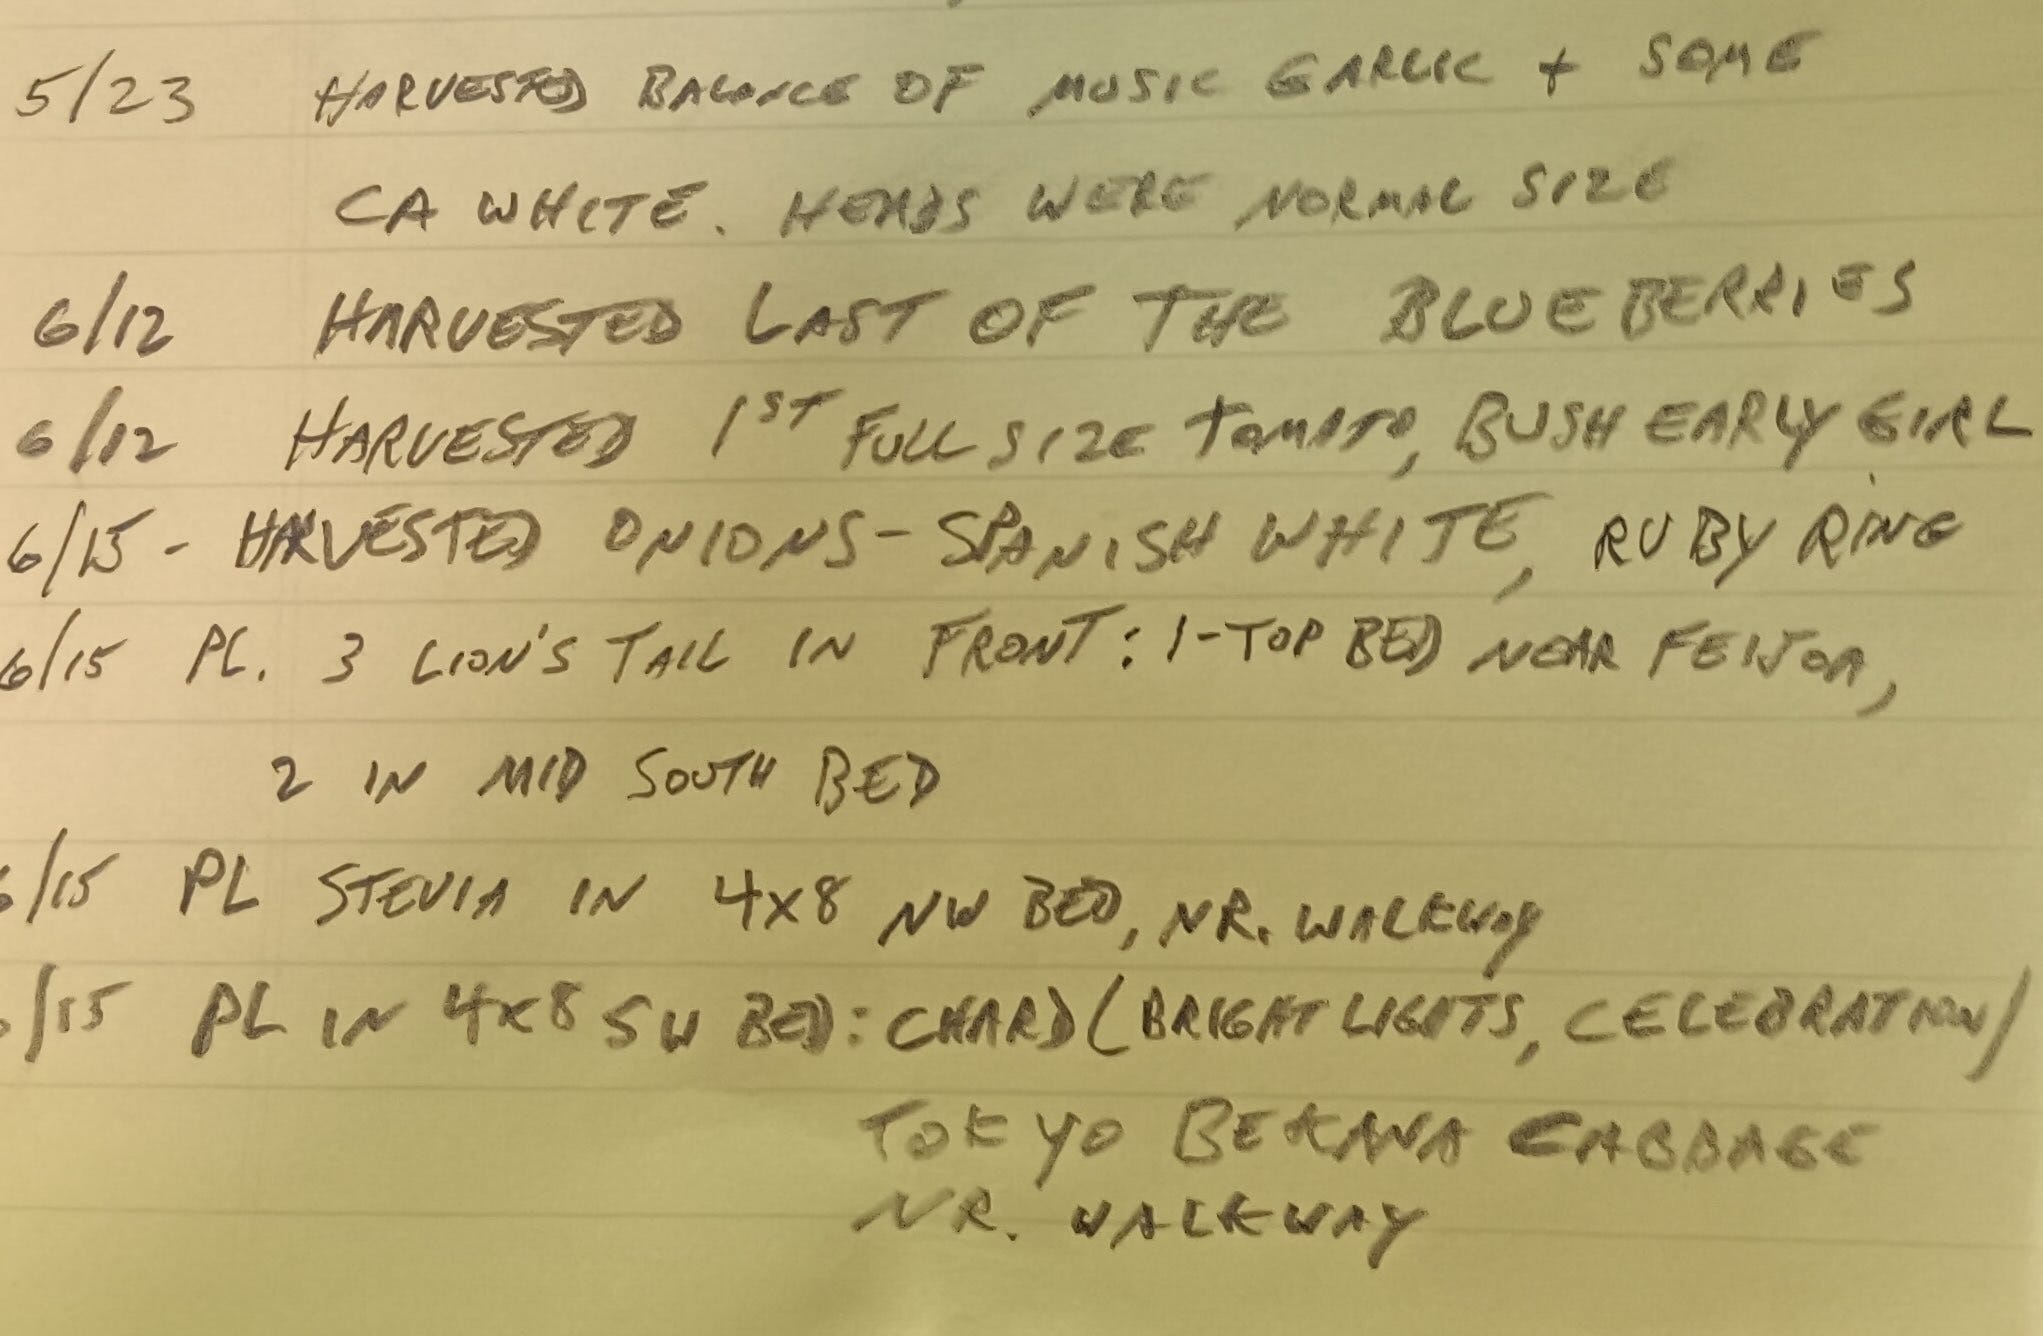 5/23 HARVESTED BALANCE OF MUSIC GARLIC + SOME
CA WHITE. HEADS WERE NORMAL SIZE
6/12 HARVESTED LAST OF THE BLUEBERRIES
6/12 HARVESTED 1ST FULL SIZE TOMATO, BUSH EARLY GIRL
6/15 - HARVESTED ONIONS - SPANISH WHITE, RUBY RING
6/15 PL. 3 LION'S TAIL IN FRONT: 1-TOP BED NEAR FEIJOA,
2 IN MID SOUTH BED
6/15 PL STEVIA IN 4x8 NW BED, NR. WALKWAY
6/15 PL IN 4x8 SW BED: CHARD (BRIGHT LIGHTS, CELEBRATION)
TOKYO BEKANA CABBAGE
NR. WALKWAY